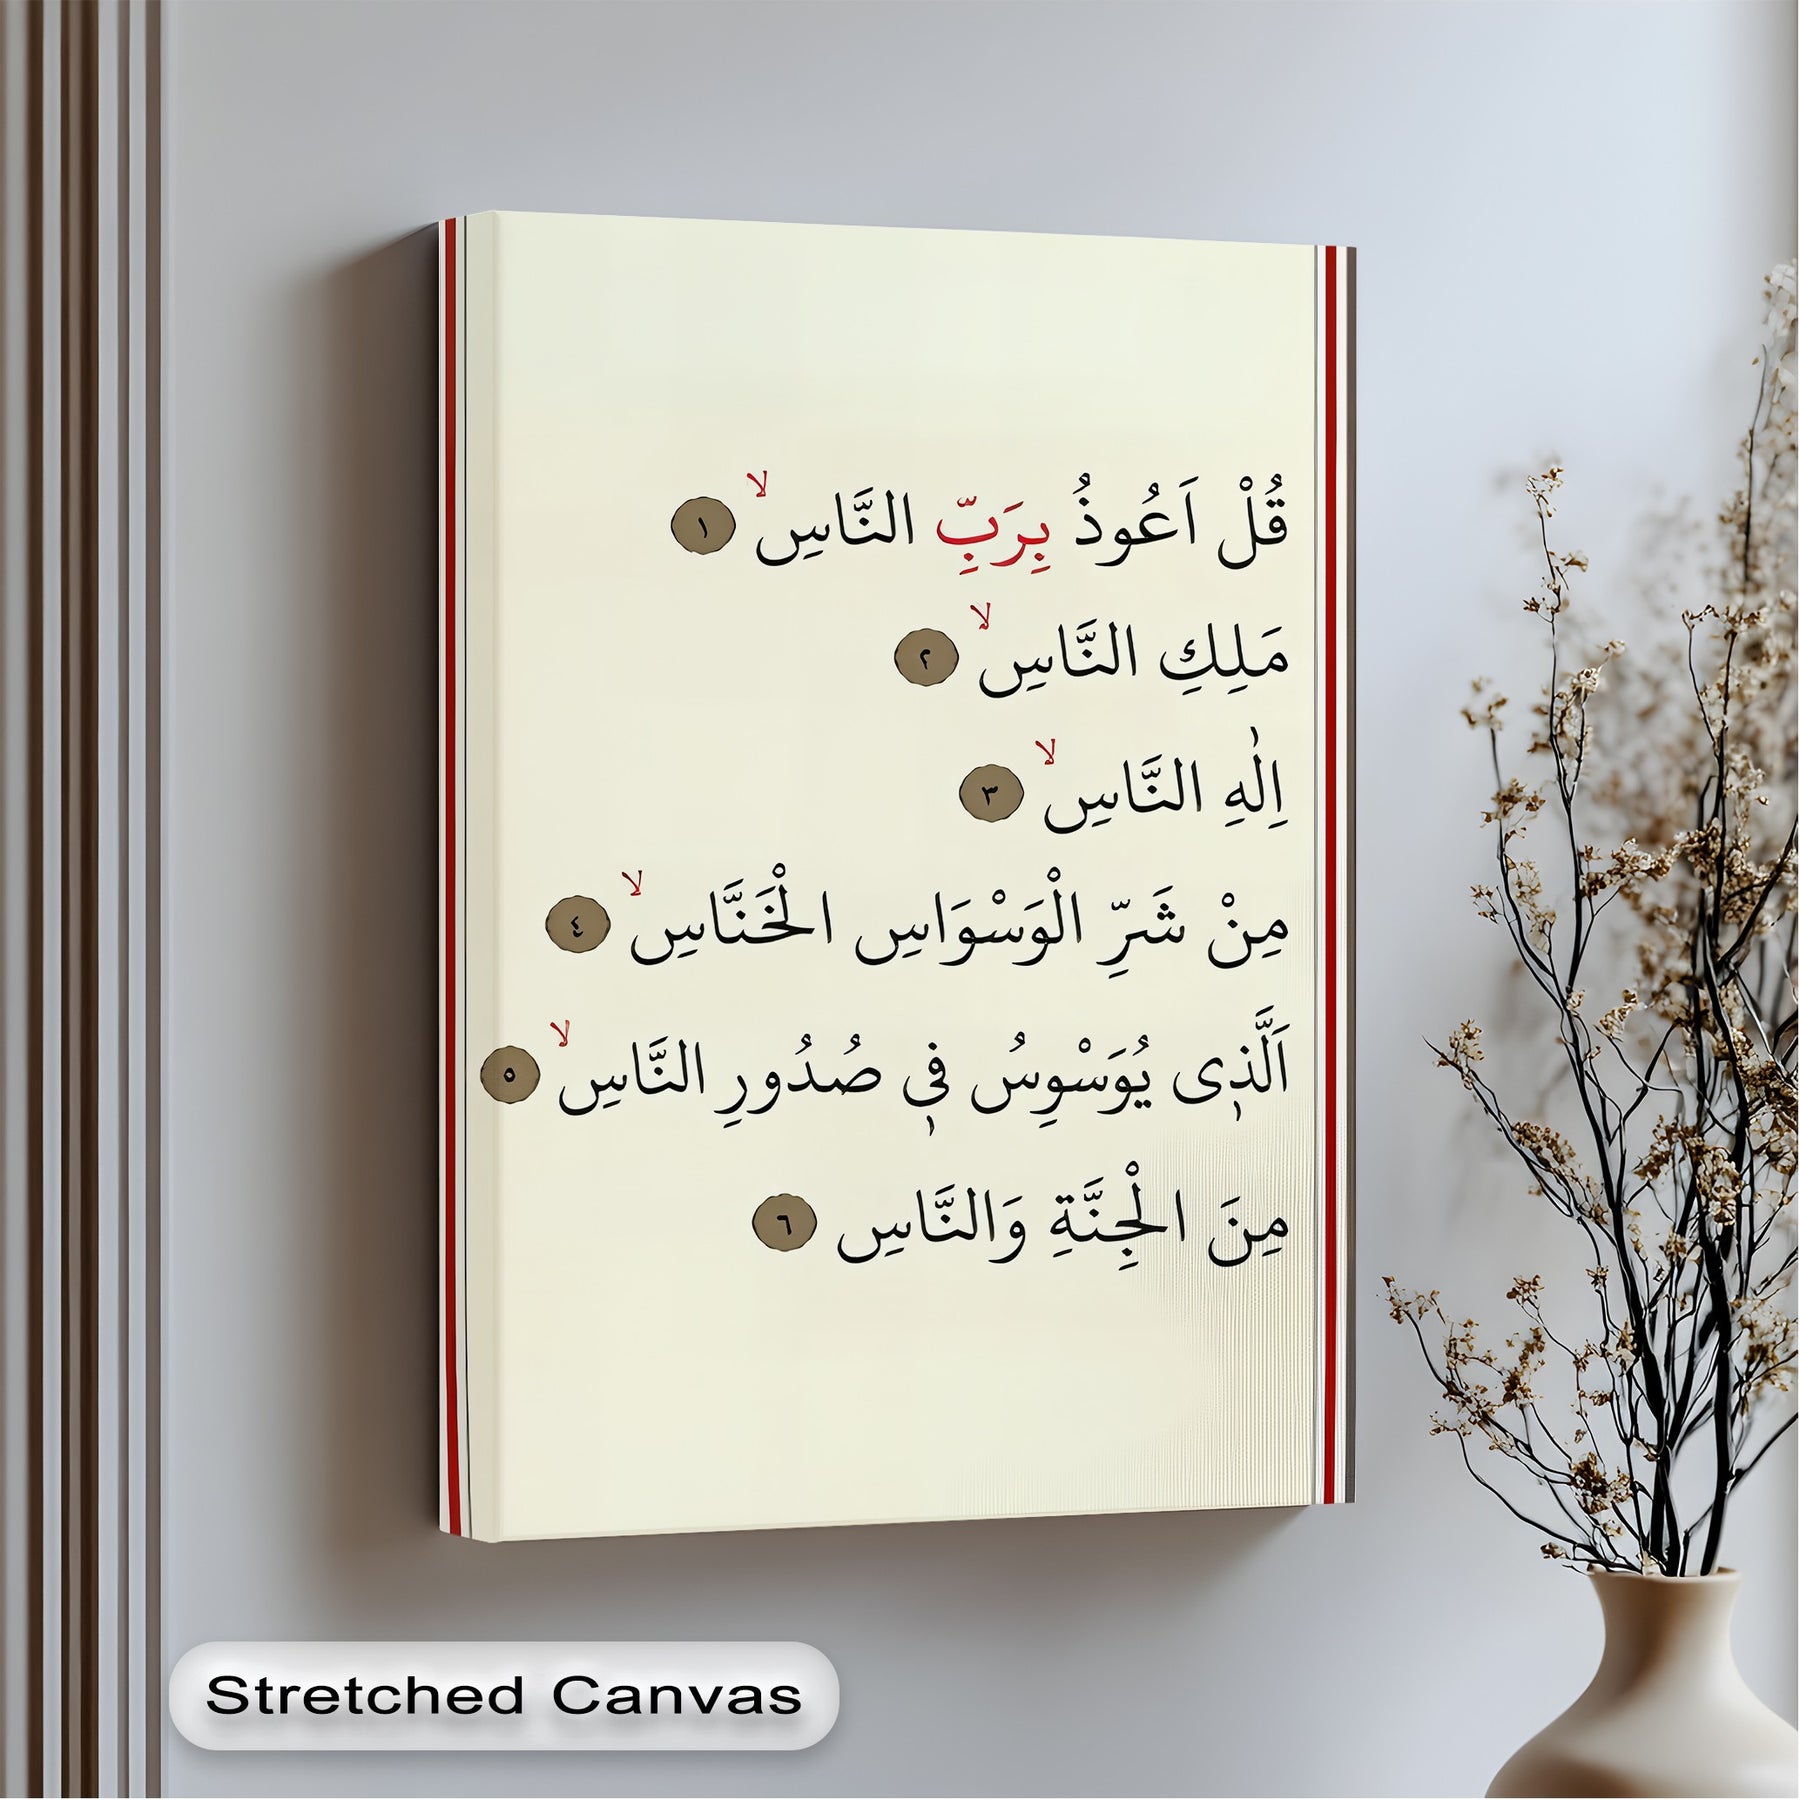 قُلْ اَعُوذُ بِرَبِّ النَّاسِۙ ١
مَلِكِ النَّاسِۙ ٢
اِلٰهِ النَّاسِۙ ٣
مِنْ شَرِّ الْوَسْوَاسِ الْخَنَّاسِۙ ٤
اَلَّذٖى يُوَسْوِسُ فٖى صُدُورِ النَّاسِۙ ٥
مِنَ الْجِنَّةِ وَالنَّاسِ ٦
Stretched Canvas